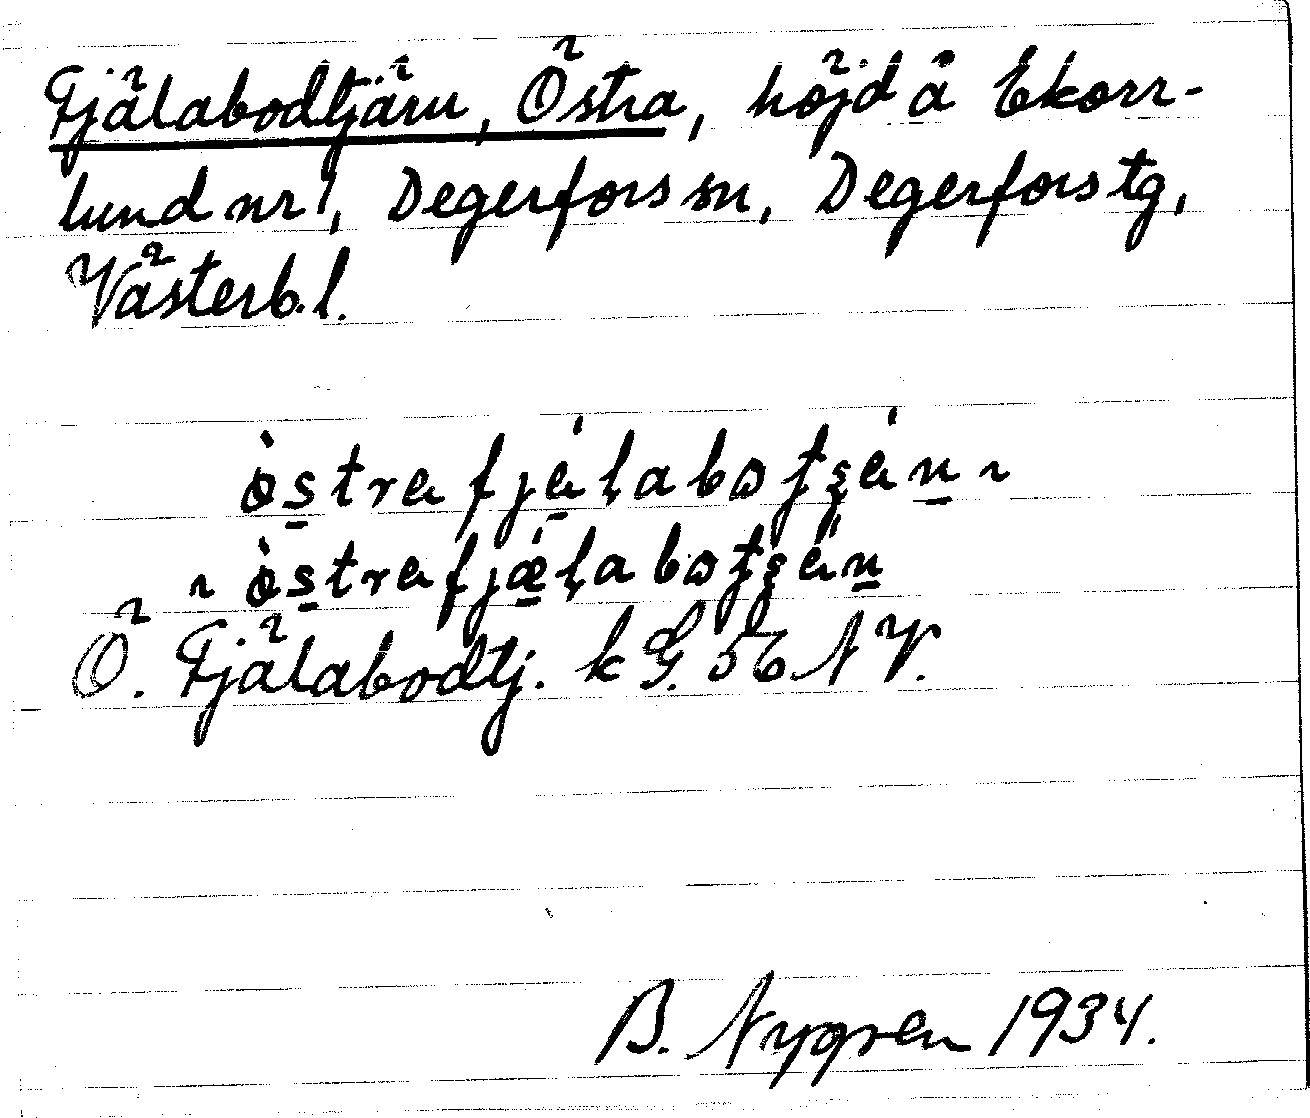 Fjälabodtjärn, Östra, höjd å Ekorr-
lund nr 1, Degerfors sn, Degerfors tg,
Västerb. l.
òstrafjálabotʂán ~
~ òstrafjǽlabotʂán
Ö. Fjälabodtj. k G. 56 N V.
B. Nygren 1934.